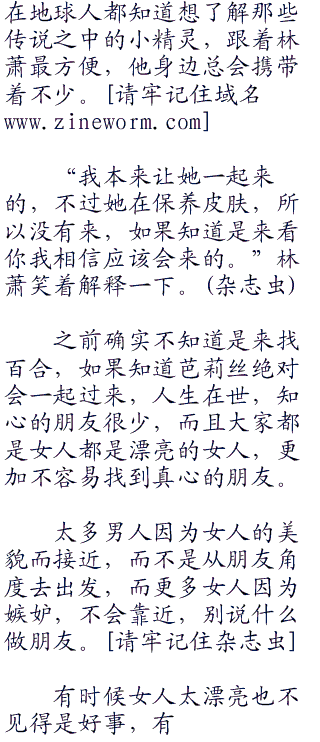 在地球人都知道想了解那些
传说之中的小精灵，跟着林
萧最方便，他身边总会携带
着不少。[请牢记住域名
www.zineworm.com]
“我本来让她一起来
的，不过她在保养皮肤，所
以没有来，如果知道是来看
你我相信应该会来的。”林
萧笑着解释一下。(杂志虫)
之前确实不知道是来找
百合，如果知道芭莉丝绝对
会一起过来，人生在世，知
心的朋友很少，而且大家都
是女人都是漂亮的女人，更
加不容易找到真心的朋友。
太多男人因为女人的美
貌而接近，而不是从朋友角
度去出发，而更多女人因为
嫉妒，不会靠近，别说什么
做朋友。[请牢记住杂志虫]
有时候女人太漂亮也不
见得是好事，有